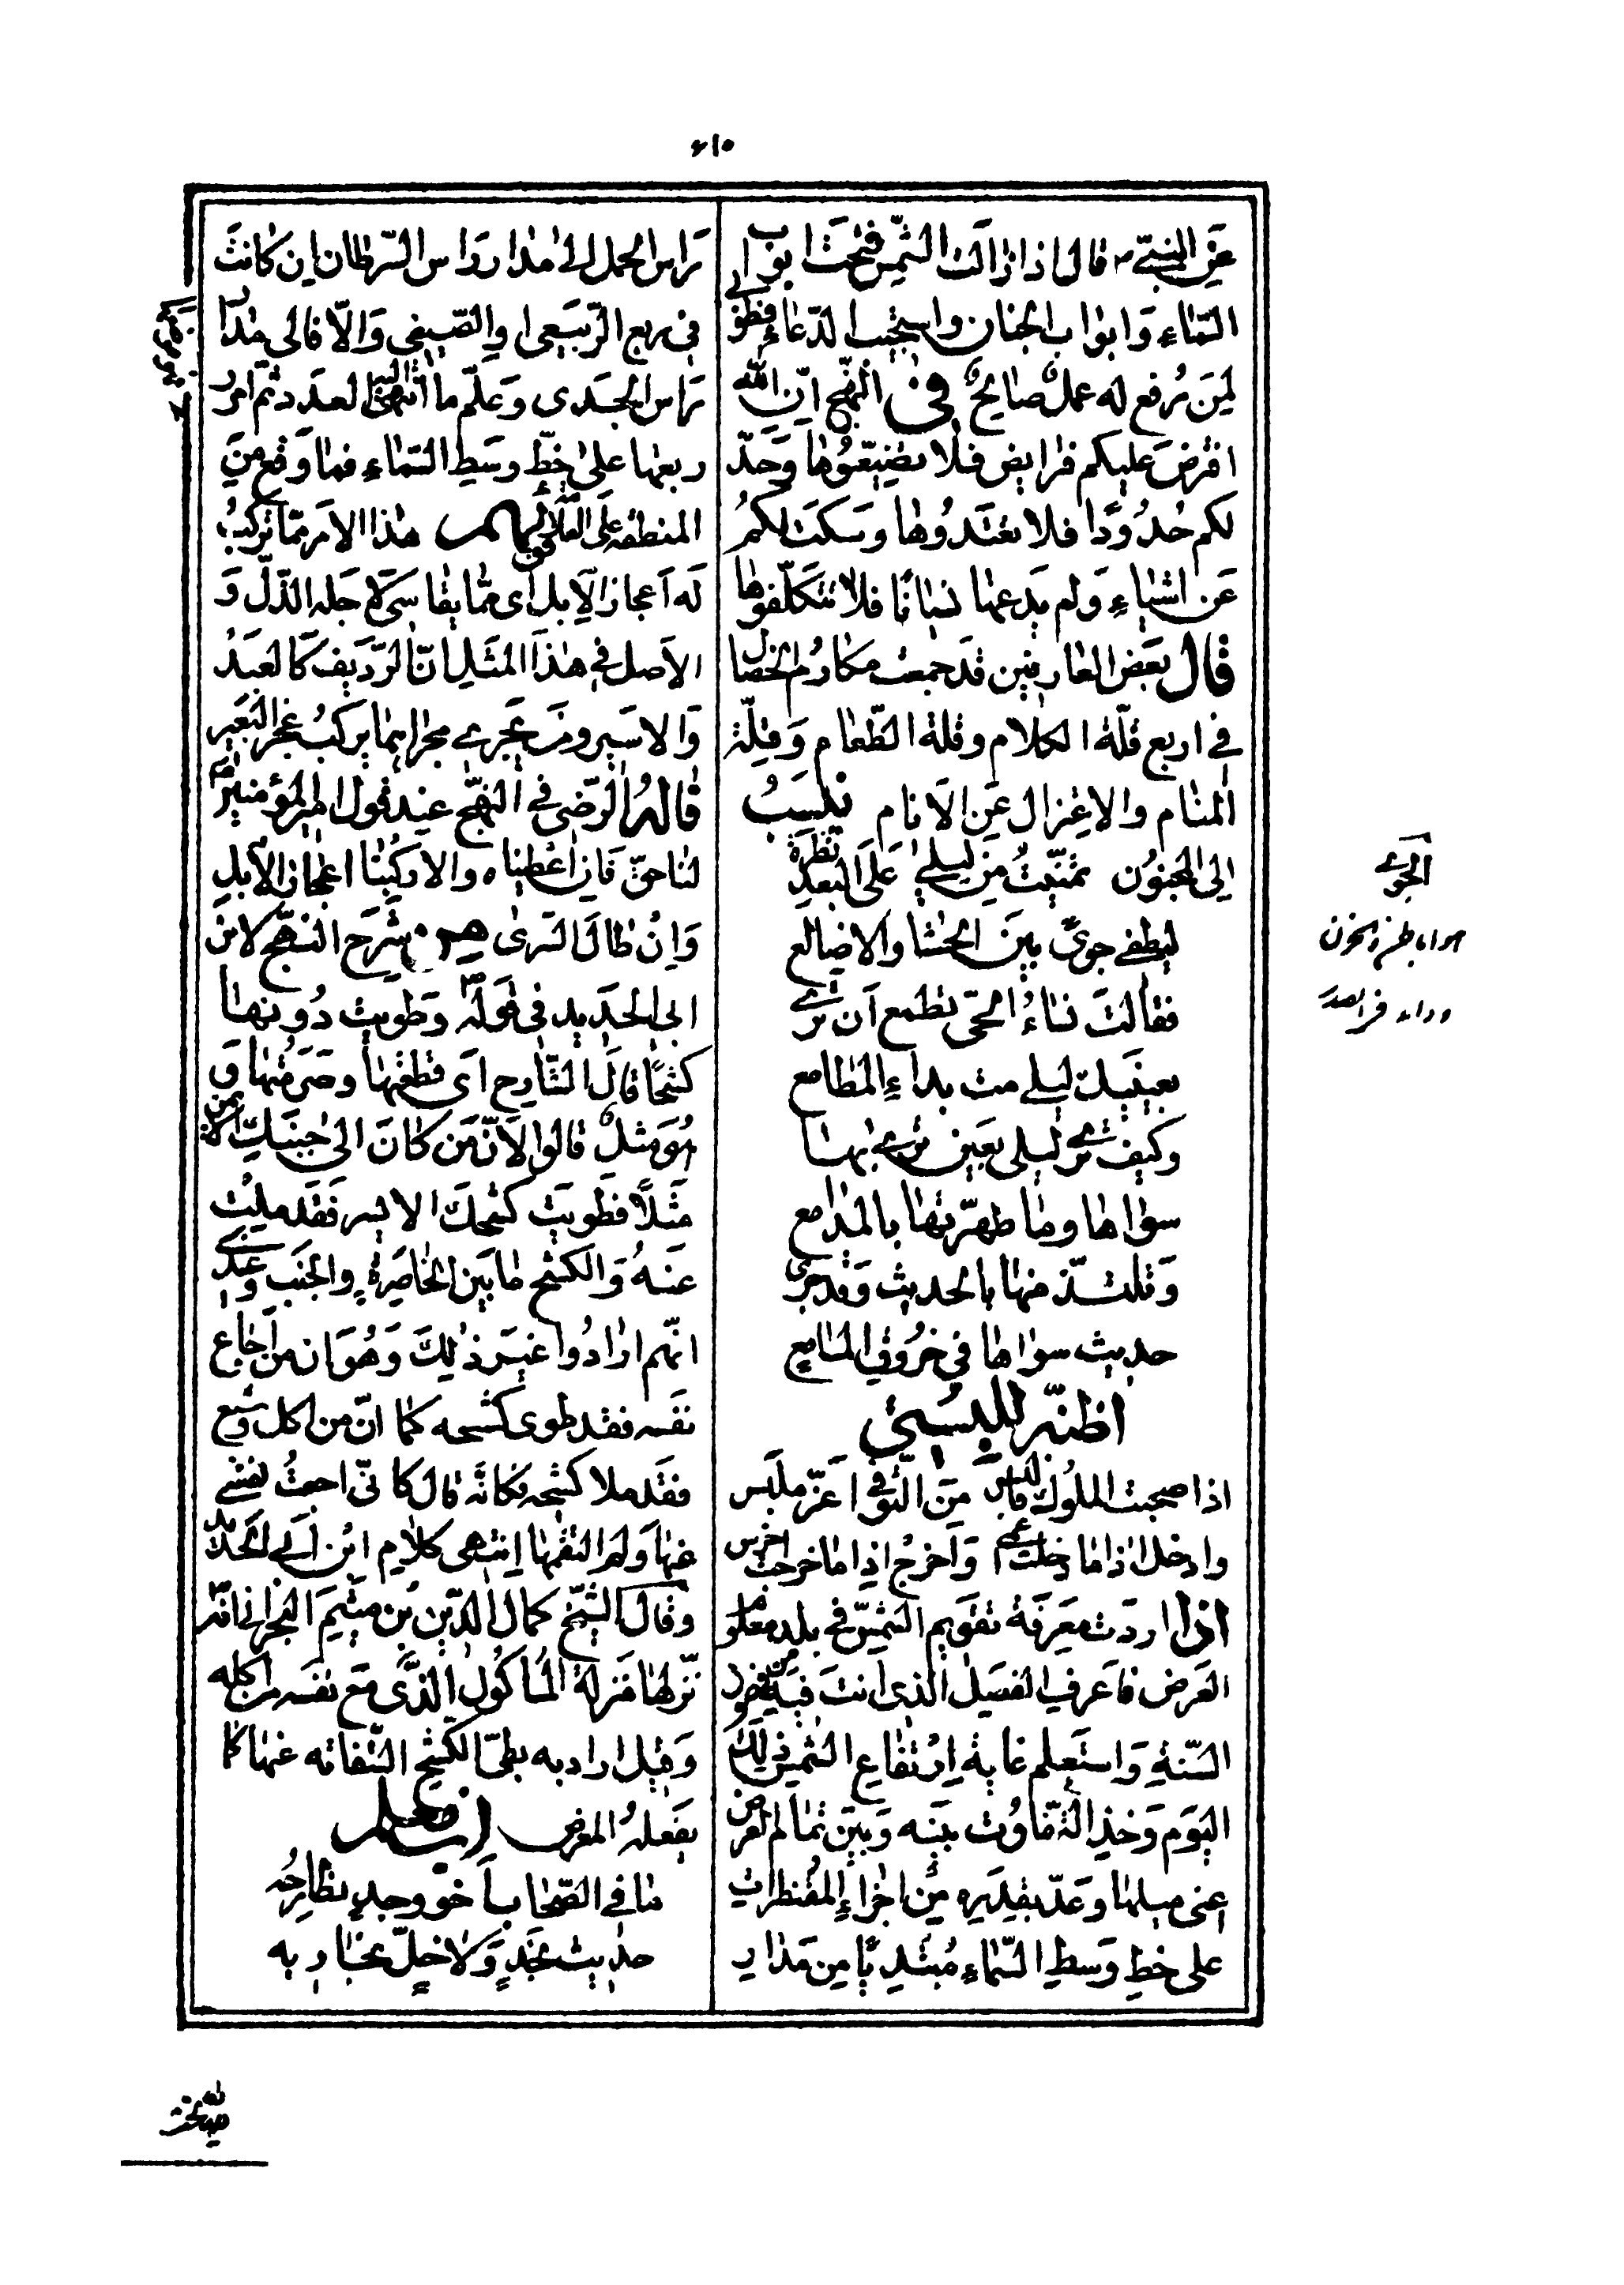 ٦١٥
عن النبي ص قال اذا زالت الشمس فتحت ابواب
السماء وابواب الجنان واستجيب الدعاء فطوبى
لمن رفع له عمل صالح في النهج ان الله
افترض عليكم فرايض فلا تضيعوها وحد
لكم حدودا فلا تعتدوها وسكت لكم
عن اشياء ولم يدعها نسيانا فلا تتكلفوها
قال بعض العارفين قد جمعت مكارم الخصال
في اربع قلة الكلام وقلة الطعام وقلة
المنام والاعتزال عن الانام ينسب
الى المجنون تمنيت من ليلى على البعد نظرة
ليطفى جوى بين الحشا والاضالع
فقالت نساء الحي تطمع ان ترى
بعينيك ليلى مت بداء المطامع
وكيف ترى ليلى بعين ترى بها
سواها وما طهرتها بالمدامع
وتلتذ منها بالحديث وقد جرى
حديث سواها في خروق المسامع
اظنه للبستي
اذا صحبت الملوك فالبس من التوقي اعز ملبس
وادخل اذا ما دخلت اعمى واخرج اذا ما خرجت اخرس
اذا اردت معرفة تقويم الشمس في بلد معلوم
العرض فاعرف الفصل الذي انت فيه من فصول
السنة واستعلم غاية ارتفاع الشمس ذلك
اليوم وخذ التفاوت بينه وبين تمام العرض
اعني ميلها وعد بقدره من اجزاء المقنطرات
على خط وسط السماء مبتديا من مدار
راس الحمل الى مدار راس السرطان ان كانت
في ربع الربيعي والصيفي والا فالى مدار
راس الجدى وعلم ما انتهى اليه العدد ثم امر
ربعها على خط وسط السماء فما وقع من
المنطقه على العلامة فهو هذا الامر مما تركب
له اعجاز الابل اى مما يقاسى لاجله الذل و
الاصل في هذا المثل ان الرديف كالعبد
والاسير ومن يجرى مجراهما يركب عجز البعير
قاله الرضى في النهج عند قول امير المؤمنين
لنا حق فان اعطيناه والا ركبنا اعجاز الابل
وان طال السرى شرح النهج لابن
ابي الحديد في قوله وطويت دونها
كشحا قال الشارح اى قطعتها وصرمتها و
هو مثل قالوا لان من كان الى جنبك الايمن
مثلا فطويت كشحك الايسر فقد ملت
عنه والكشح ما بين الخاصرة والجنب وعندى
انهم ارادوا غير ذلك وهو ان من اجاع
نفسه فقد طوى كشحه كما ان من اكل وشبع
فقد ملا كشحه فكانه قال كاني اجعت نفسى
عنها ولم القمها انتهى كلام ابن ابي الحديد
وقال الشيخ كمال الدين بن ميثم البحراني انه
نزلها منزلة الماكول الذى منع نفسه من اكله
وقيل اراد به بطى الكشح التفاته عنها كما
يفعله المعرض ابن المعلم
ما في الصحاب اخو وجد نطارحه
حديث نجد ولا خل نجاريه
الجوى